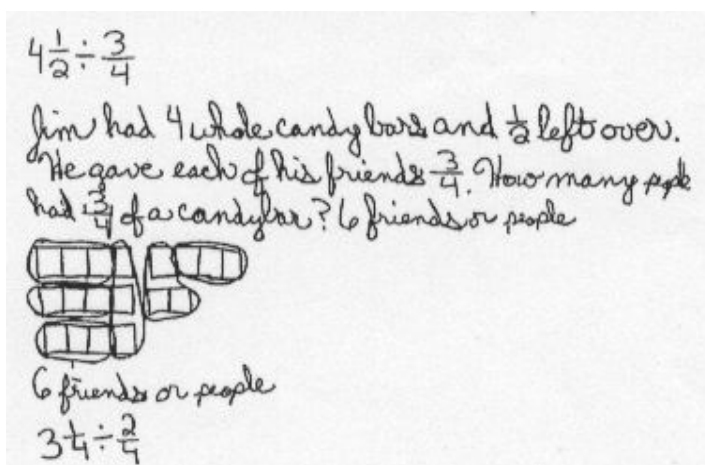 4 1/2 ÷ 3/4
Jim had 4 whole candy bars and 1/2 left over.
He gave each of his friends 3/4. How many people
had 3/4 of a candybar? 6 friends or people
6 friends or people
3 1/4 ÷ 2/4